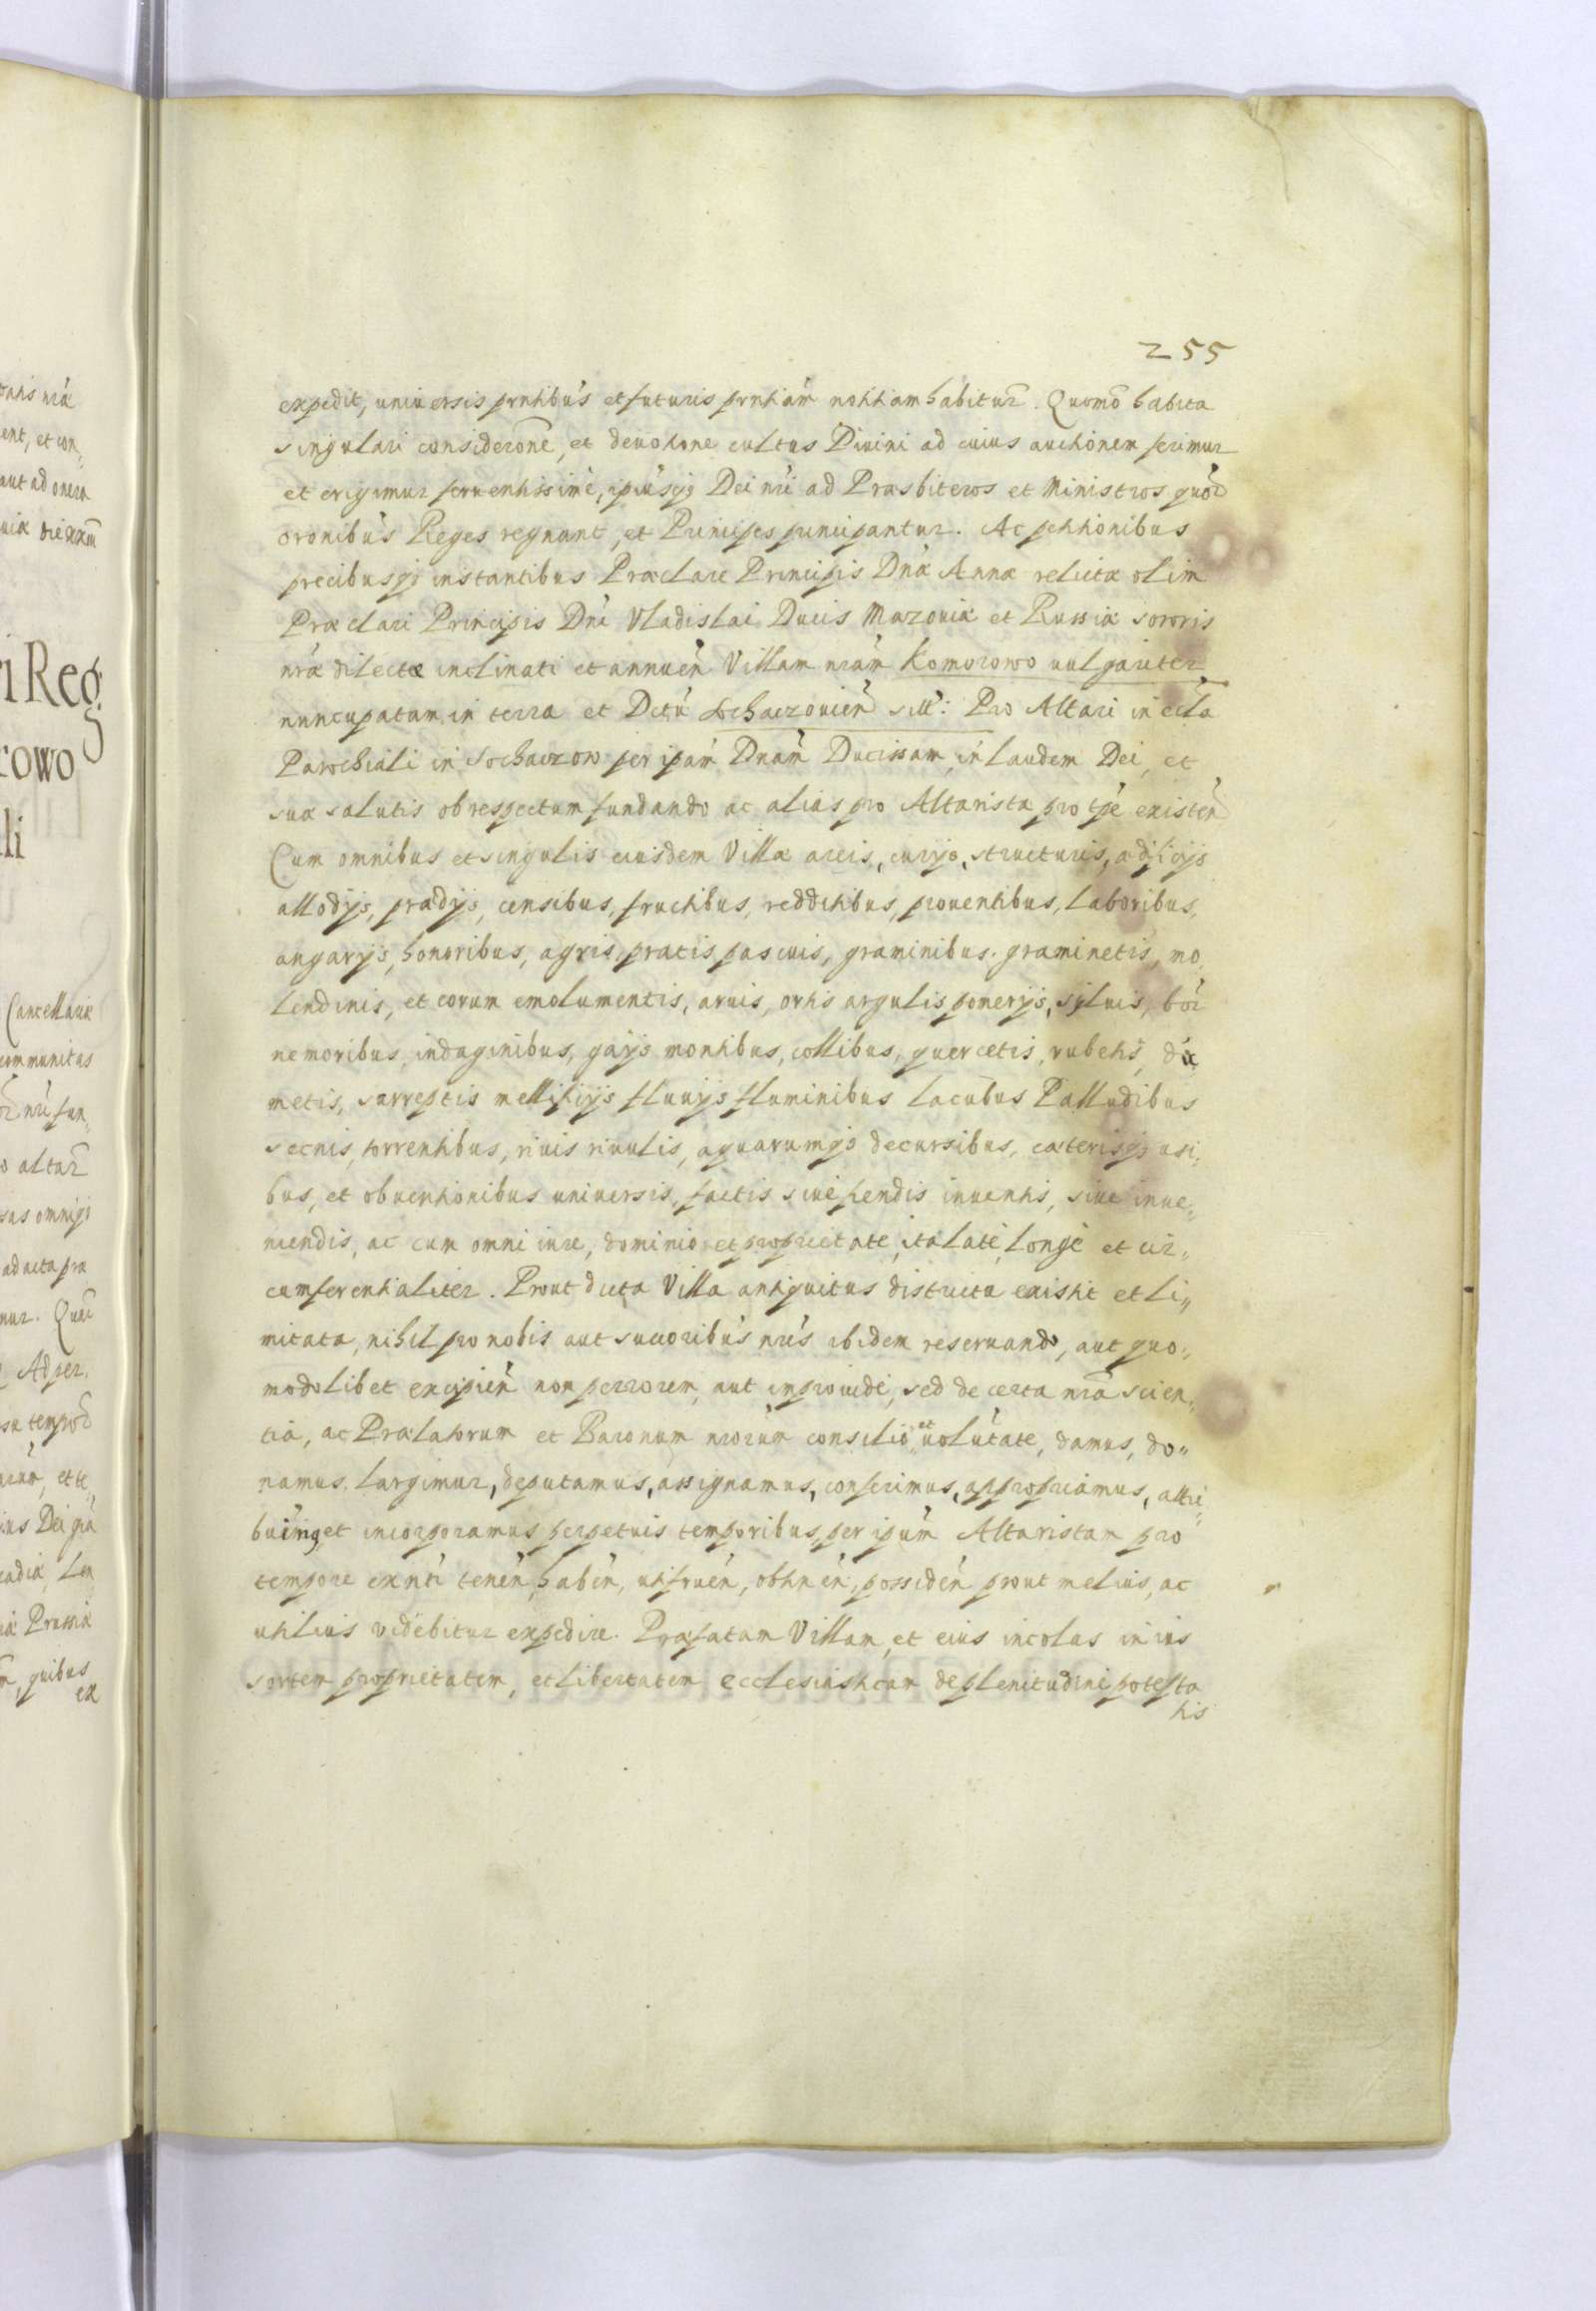 255
expedit, uniuersis prntibus et futuris prntiam notitiam habitur. Quomo habita
singulari considerone, et deuotione cultus Diuini ad cuius auctionem ferimur
et erigimur feruentissime, ipiusqȝ Dei nri ad Præsbiteros et Ministros quor
oronibus Reges regnant, et Principes principantur. Ac petitionibus
precibusqȝ instantibus Præclare Principis Dnæ Annæ relictæ olim
Præclari Principis Dni Vladislai Ducis Mazouiæ et Russiæ sororis
nræ dilectæ inclinati et annuen Villam nram Komorowo uulgariter
nuncupatam in terra et Dctu Sochaczouien sitt: Pro Altari in eccla
Parochiali in Sochaczow per ipam Dnam Ducissam, in laudem Dei, et
suæ salutis ob respectum fundando ac alias pro Altarista pro tpe existen
Cum omnibus et singulis eiusdem Villæ areis, curijs, structuris, ædificijs
allodijs, prædijs, censibus, fructibus, redditibus, prouentibus, laboribus,
angarijs, honoribus, agris, pratis pascuis, graminibus. graminetis, mo
lendinis, et eorum emolumentis, aruis, ortis argulis ponerijs, syluis, bor
nemoribus, indaginibus, gajis montibus, collibus, quercetis, rubetis, du
metis, sarreptis mellificijs fluuijs fluminibus lacubus Palludibus
secnis, torrentibus, riuis riuulis, aquarumqȝ decursibus, cæterisqȝ usi„
bus, et obuentionibus uniuersis, factis siue fiendis inuentis, siue inue„
niendis, ac cum omni iure, dominio et proprietate, ita late, longe et cir„
cumferentialiter. Prout dicta Villa antiquitus districta existit et li„
mitata, nihil pro nobis aut succoribus nris ibidem reseruando, aut quo„
modolibet excipien non per errorem, aut improuide, sed de certa nra scien„
tia, ac Prælatorum et Baronum nrorum consilio et uolutate, damus, do„
namus. largimur, deputamus, assignamus, conferimus, appropriamus, attri„
buimȝ et incorporamus perpetuis temporibus, per ipum Altaristam pro
tempore exnti tenen, haben, utifruen, obtinen, possiden prout melius, ac
utilius videbitur expedire. Præfatam Villam, et eius incolas in ius
sortem proprietatem, et libertatem ecclesiasticam de plenitudine potesta
tis